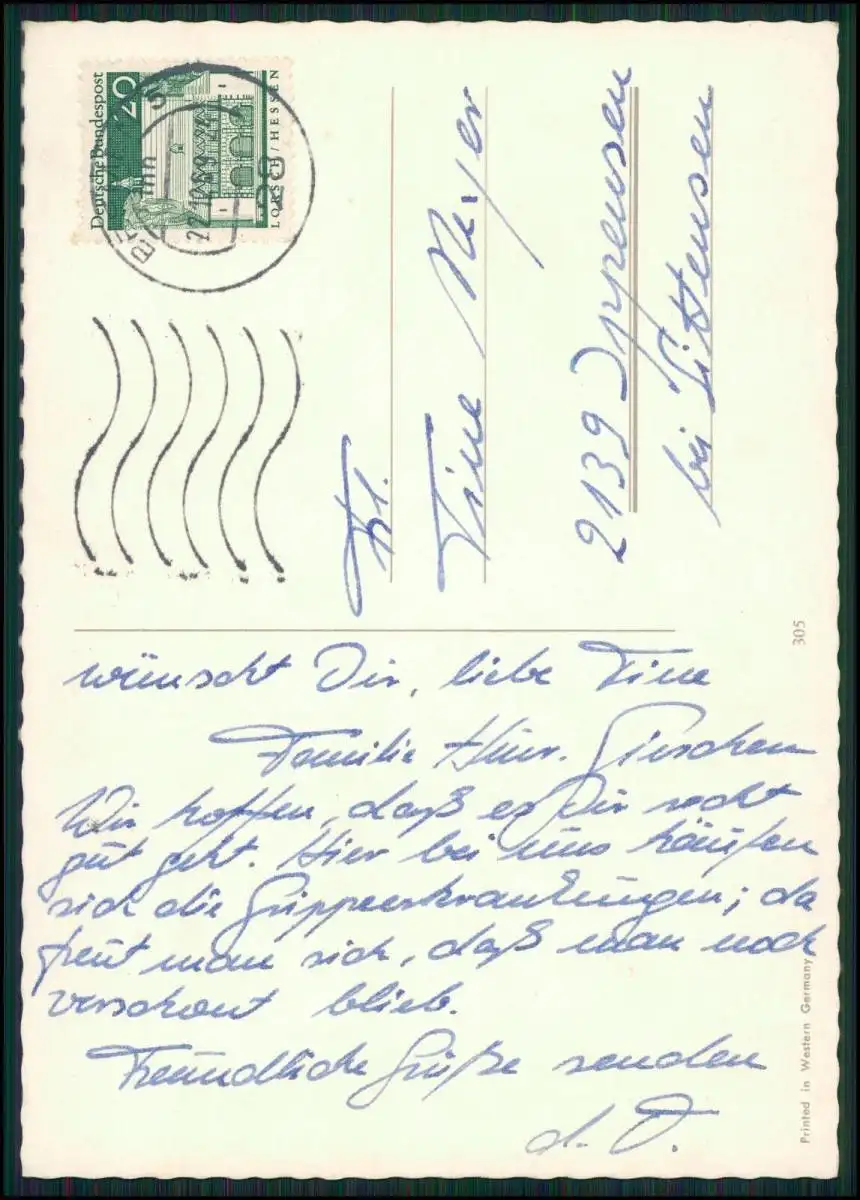 Deutsche Bundespost
20
LORSCH / HESSEN
22.12.69
28
Frl.
Tine Meyer
2139 Ippensen
bei Sittensen
305
wünscht Dir, liebe Tine
Familie Hinr.
Wir hoffen, daß es Dir recht
gut geht. Hier bei uns häufen
sich die Grippeerkrankungen; da
freut man sich, daß man noch
verschont blieb.
Freundliche Grüße senden
d. O.
Printed in Western Germany